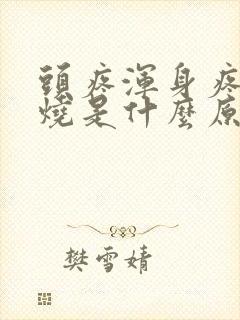 頭疼渾身疼
燒是什麼原
樊雪婧